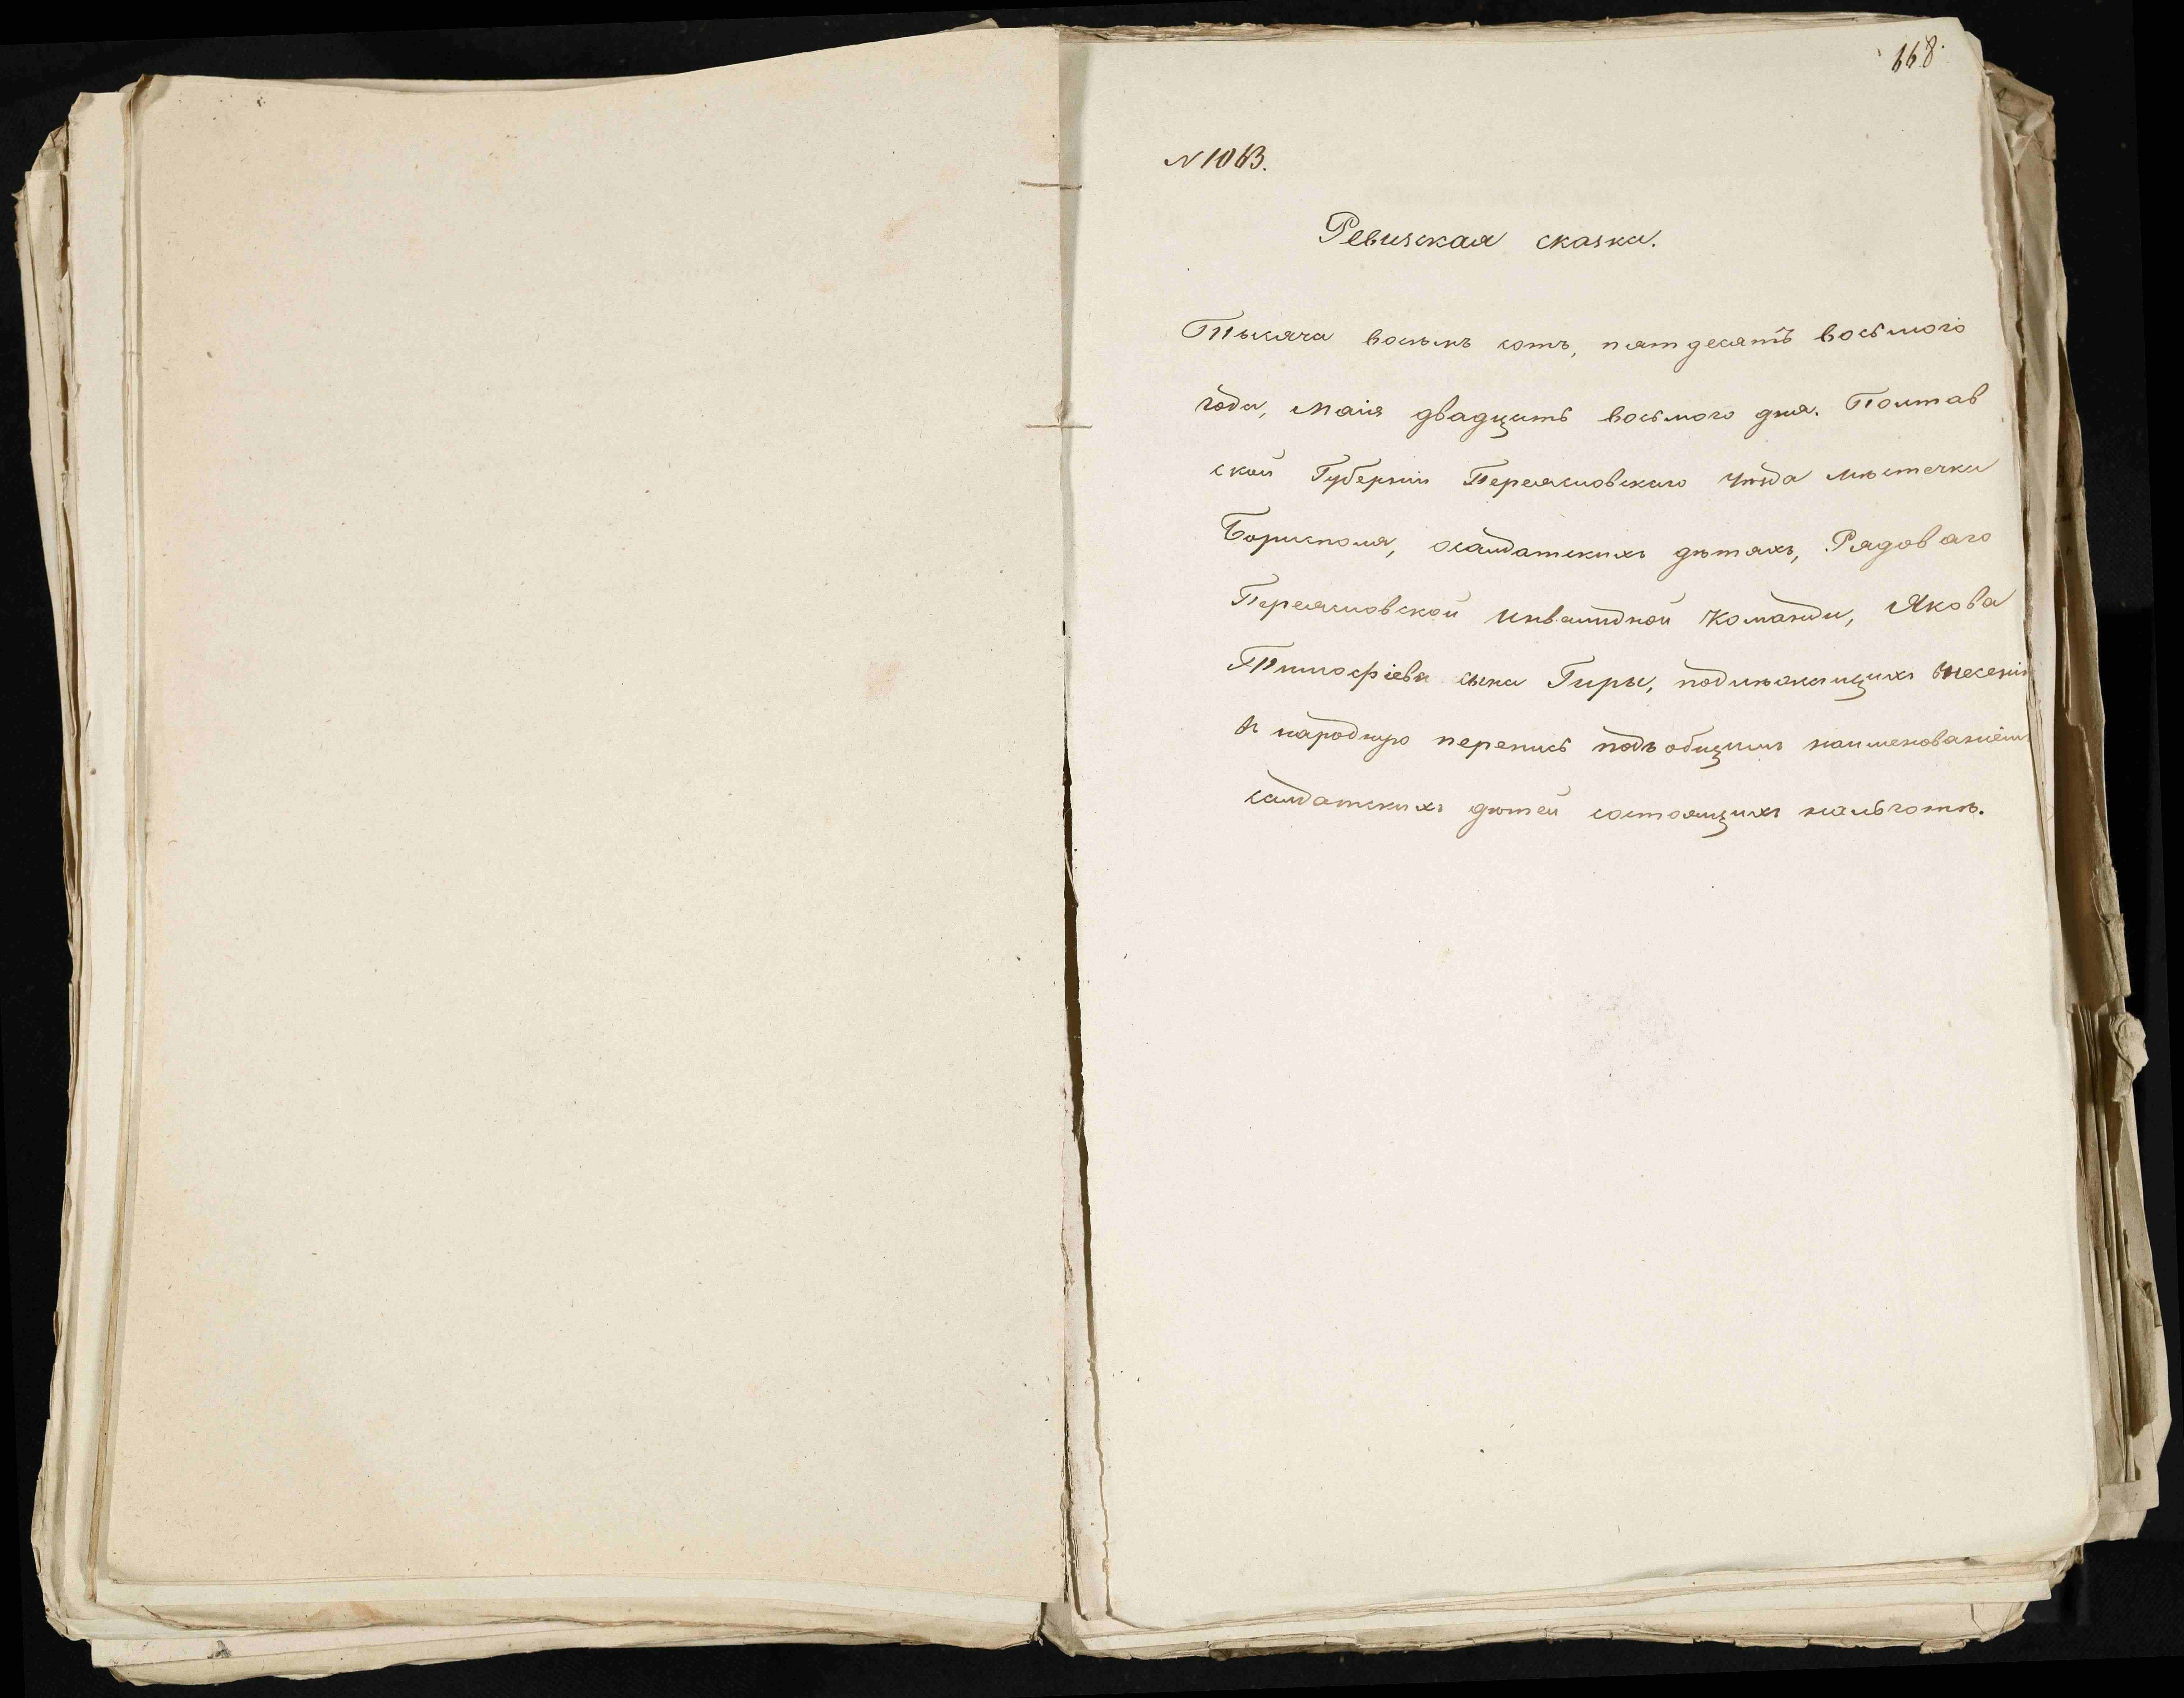 168.
N 1063.
Ревизская сказка.
Тысяча восемь сотъ, пятдесятъ восьмого
года, маія двадцать восьмого дня. Полтав
ской Губерніи Переяславскаго уѣзда мѣстечка
Борисполя, о салдатскихъ дѣтяхъ, Рядоваго
Переяславской инвалидной команды, Якова
Тимофіева сына Гиры, подлежащихъ внесенію
въ народную перепись подъ общимъ наименованіемъ
салдатскихъ дѣтей состоящихъ нальготѣ.